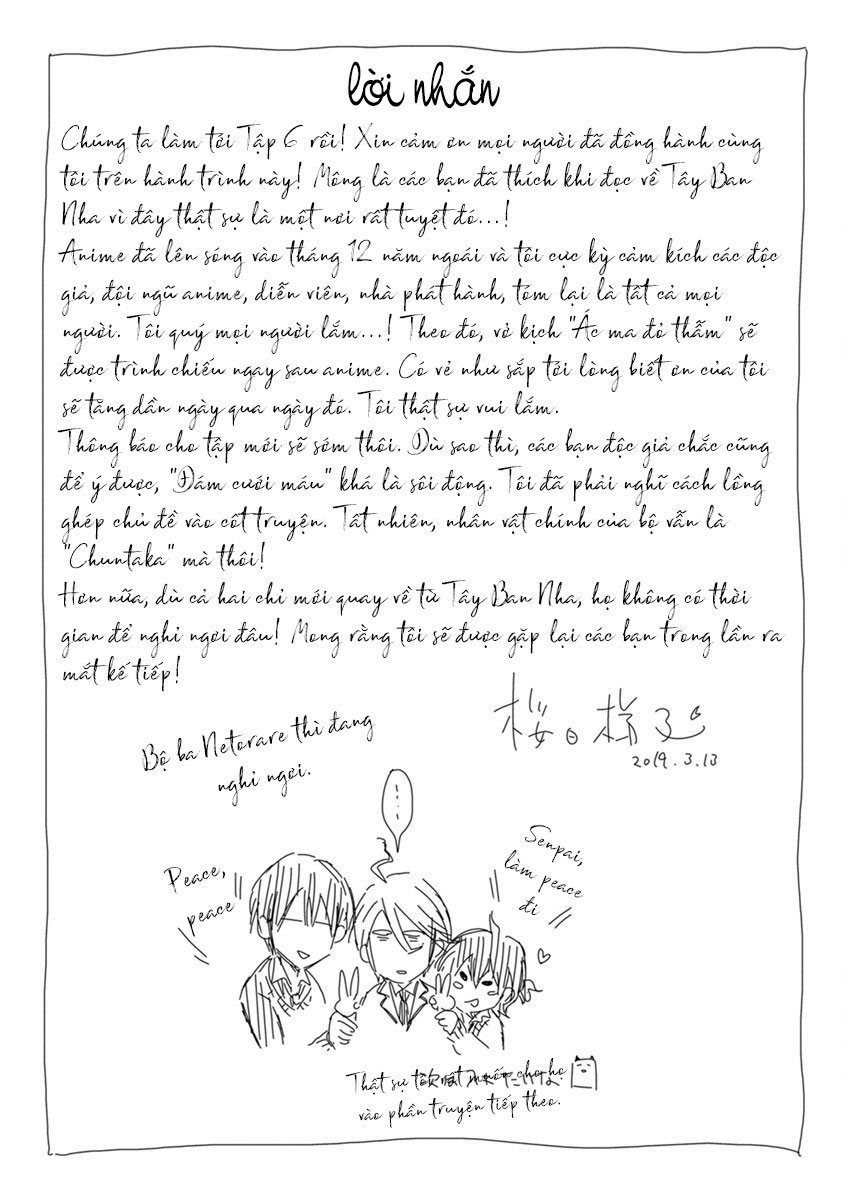 lời nhắn
Chúng ta làm tới Tập 6 rồi! Xin cảm ơn mọi người đã đồng hành cùng
tôi trên hành trình này! Mông là các bạn đã thích khi đọc về Tây Ban
Nha vì đây thật sự là một nơi rất tuyệt đó...!
Anime đã lên sóng vào tháng 12 năm ngoái và tôi cực kỳ cảm kích các độc
giả, đội ngũ anime, diễn viên, nhà phát hành, tóm lại là tất cả mọi
người. Tôi quý mọi người lắm...! Theo đó, vở kịch "Ác ma đỏ thẫm" sẽ
được trình chiếu ngay sau anime. Có vẻ như sắp tới lòng biết ơn của tôi
sẽ tăng dần ngày qua ngày đó. Tôi thật sự vui lắm.
Thông báo cho tập mới sẽ sớm thôi. Dù sao thì, các bạn độc giả chắc cũng
để ý được, "Đám cưới máu" khá là sôi động. Tôi đã phải nghĩ cách lồng
ghép chủ đề vào cốt truyện. Tất nhiên, nhân vật chính của bộ vẫn là
"Chuntaka" mà thôi!
Hơn nữa, dù cả hai chỉ mới quay về từ Tây Ban Nha, họ không có thời
gian để nghỉ ngơi đâu! Mong rằng tôi sẽ được gặp lại các bạn trong lần ra
mắt kế tiếp!
桜日梯子
2019.3.13
Bộ ba Netorare thì đang
nghỉ ngơi.
Peace,
peace
Senpai,
làm peace
đi
Thật sự tôi rất muốn cho họ
vào phần truyện tiếp theo.